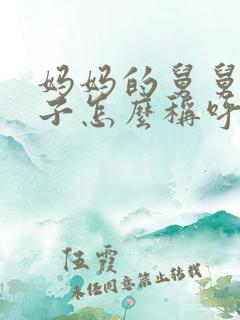 妈妈的舅舅
子怎麼稱呼
伍霞
未任同意禁止转载